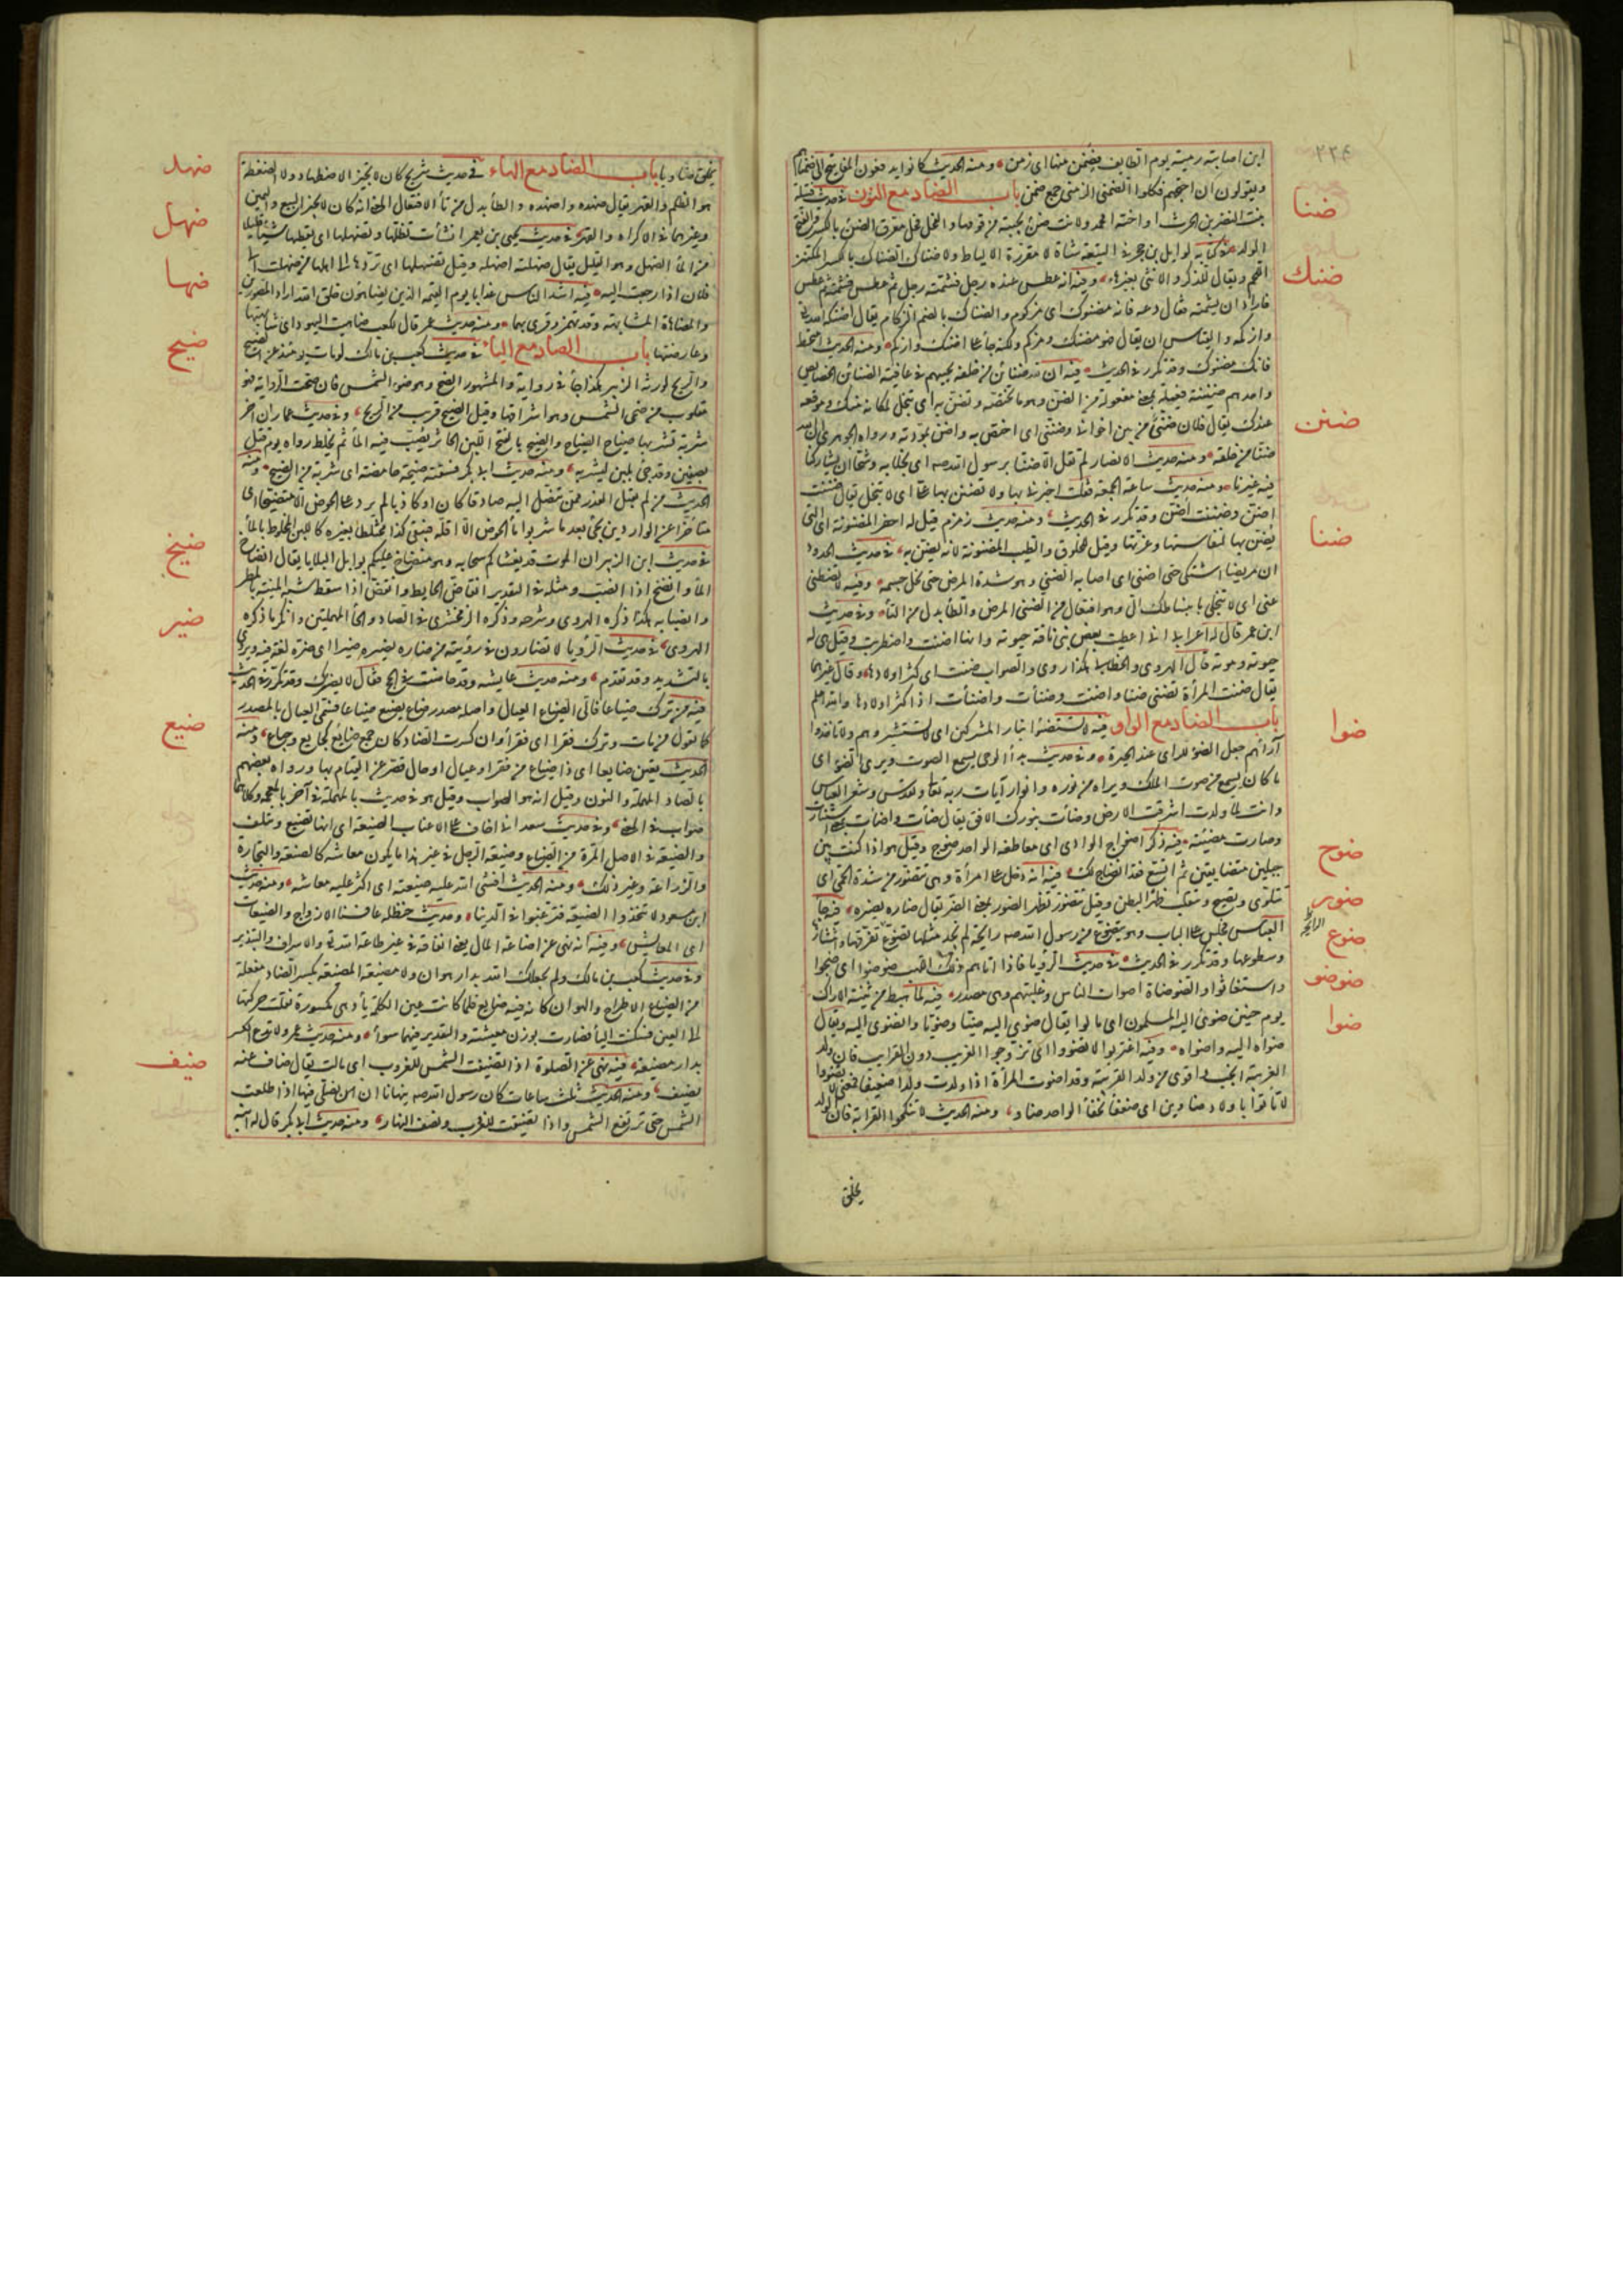 ٢٢٤
ابن اصابته رمية يوم الطايف فضمن منها اى زمن ومنه الحديث كانوا يدفعون المفاتيح الى ضمناهم
ويقولون ان احتجتم فكلوا الضمنى الزمنى جمع ضمن باب الضاد مع النون فى حديث قتيلة
ضنا
بنت النضر بن الحرث او اخته امحمد ولانت ضنئ نجيبة من قومها والفحل فحل معرق الضنئ بالكسر
الولد فى كتابه لوايل بن حجر فى التيعة شاة لا مقورة الالياط ولا ضناك الضناك بالكسر المكتنز
ضنك
اللحم ويقال للذكر والانثى بغيرها وفيه انه عطس عنده رجل فشمته رجل ثم عطس فشمته ثم عطس
فاراد ان يشمته فقال دعه فانه مضنوك اى مزكوم والضناك بالضم الزكام يقال اضنكه الله
وازكمه والقياس ان يقال فهو مضنك ومزكم ولكنه جاء على اضنك وازكم ومنه الحديث امتخط
فانك مضنوك وقد تكرر فى الحديث فيه ان لله ضنائن من خلقه يحييهم فى عافية الضنائن الخصايص
ضنن
واحدهم ضنينة فعيلة بمعنى مفعولة من الضن وهو ما تختصه وتضن به اى تبخل لمكانه منك وموقعه
عندك يقال فلان ضنى من بين اخوانى وضنتى اى اختص به واضن بمودته ورواه الجوهرى ان لله
ضنا من خلقه ومنه حديث الانصار لم نقل الا ضنا برسول الله صه اى بخلا به وشحا ان يشاركنا
فيه غيرنا ومنه حديث ساعة الجمعة فقلت اخبرنى بها ولا تضنن بها على اى لا تبخل يقال ضننت
اضن وضننت اضن وقد تكرر فى الحديث ومنه حديث زمزم قيل له احفر المضنونة اى التى
يضن بها لنفاستها وعزتها وقيل للخلوق والطيب المضنونة لانه يضن به فى حديث الحدود
ضنا
ان مريضا اشتكى حتى اضنى اى اصابه الضنى وهو شدة المرض حتى نحل جسمه وفيه لا تضطنى
عنى اى لا تبخلى بانبساطك الى وهو افتعال من الضنى المرض والطاء بدل من التاء وفى حديث
ابن عمر قال له اعرابى انى اعطيت بعض بنى ناقة حيوته وانها اضنت واضطربت فقال هى له
حيوته وموته قال الهروى والخطابى هكذا روى والصواب ضنت اى كثر اولادها وقال غيرهما
يقال ضنت المرأة تضنى ضنا واضنت وضنأت واضنأت اذا كثر اولادها والله اعلم
باب الضاد مع الواو فيه لا تستضيئوا بنار المشركين اى لا تستشيروهم ولا تاخذوا
ضوا
آراءهم جعل الضوء للراى عند الحيرة وفى حديث بدأ الوحى يسمع الصوت ويرى الضوء اى
ما كان يسمع من صوت الملك ويراه من نوره وانوار آيات ربه تعالى وتقدس وشعر العباس
وانت لما ولدت اشرقت الارض وضاءت بنورك الافق يقال ضاءت واضاءت بمعنى استنارت
وصارت مضيئة فيه ذكر اضواج الوادى اى معاطفه الواحد ضوج وقيل هو اذا كنت بين
ضوج
جبلين متضايقين ثم اتسع فقد انضاج لك فيه انه دخل على امرأة وهى تتضور من شدة الحمى اى
ضور
تتلوى وتصيح وتتقلب ظهر البطن وقيل تتضور تظهر الضور بمعنى الضر يقال ضاره يضوره فيه جاء
ضوع
الرايحة
العباس فجلس على الباب وهو يتضوع من رسول الله صه رايحة لم يجد مثلها تضوع تفرقها وانتشارها
وسطوعها وقد تكرر فى الحديث فى حديث الرويا فاذا اتاهم ذلك اللهب ضوضوا اى ضجوا
ضوضو
واستغاثوا والضوضاة اصوات الناس وغلبتهم وهى مصدر فيه لما هبط من ثنية الاراك
ضوا
يوم حنين ضوى اليه المسلمون اى مالوا يقال ضوى اليه ضيا وضويا وانضوى اليه ويقال
ضواه اليه واضواه وفيه اغتربوا لا تضووا اى تزوجوا الغريب دون القرايب فان ولد
الغريبة انجب واقوى من ولد القريبة وقد اضوت المرأة اذا ولدت ولدا ضعيفا فمعنى لا تضووا
لا تاتوا باولاد ضاوين اى ضعفاء نحفاء الواحد ضاو ومنه الحديث لا تنكحوا القرابة فان الولد
يخلق
يخلق ضاويا باب الضاد مع الهاء فى حديث شريح كان لا يجيز الاضطهاد ولا الضغطة
ضهد
هو الظلم والقهر يقال ضهده واضهده والطاء بدل من تاء الافتعال المعنى انه كان لا يجيز البيع واليمين
وغيرهما فى الاكراه والقهر فى حديث يحيى بن يعمر انشأت تطلها وتضهلها اى تعطيها شيئا قليلا
ضهل
من الماء الضهل وهو القليل يقال ضهلته اضهله وقيل تضهلها اى تردها الى اهلها من ضهلت الى
فلان اذا رجعت اليه فيه اشد الناس عذابا يوم القيمة الذين يضاهون خلق الله اراد المصورين
ضها
والمضاهاة المشابهة وقد تهمز وقرى بهما ومنه حديث عمر قال لكعب ضاهيت اليهود اى شابهتها
وعارضتها باب الضاد مع الياء فى حديث كعب بن مالك لو مات يومئذ عن الضيح
ضيح
والريح لورثه الزبير هكذا جاء فى رواية والمشهور الضح وهو ضوء الشمس فان صحت الرواية فهو
مقلوب من ضحى الشمس وهو اشراقها وقيل الضيح قريب من الريح وفى حديث عمار ان آخر
شربة تشربها ضياح الضياح والضيح بالفتح اللبن الخاثر يصب فيه الماء ثم يخلط رواه يوم قتل
بصفين وقد جئ بلبن ليشربه ومنه حديث ابى بكر فسقته ضيحة حامضة اى شربة من الضيح ومنه
الحديث من لم يقبل العذر ممن تنصل اليه صادقا كان او كاذبا لم يرد على الحوض الا متضيحا اى
متاخرا عن الواردين يجئ بعد ما شربوا ماء الحوض الا اقله فيبقى كدرا مختلطا بغيره كاللبن المخلوط بالماء
فى حديث ابن الزبير ان الموت قد تغشاكم سحابه وهو منضاخ عليكم بوابل البلايا يقال انضاخ
ضيخ
الماء وانضخ اذا انصب ومثله فى التقدير انقاض الحايط وانقض اذا سقط شبه المنية بالمطر
وانصبابه هكذا ذكره الهروى وشرحه وذكره الزمخشرى فى الصاد والحاء المهملتين وانكر ما ذكره
ضير
الهروى فى حديث الرؤيا لا تضارون فى رؤيته من ضاره يضيره ضيرا اى ضره لغة فيه ويروى
بالتشديد وقد تقدم ومنه حديث عايشة وقد حاضت فى الحج فقال لا يضيرك وقد تكرر فى الحديث
فيه من ترك ضياعا فالى الضياع العيال واصله مصدر ضاع يضيع ضياعا فسمى العيال بالمصدر
ضيع
كما تقول من مات وترك فقرا اى فقراء وان كسرت الضاد كان جمع ضايع كجايع وجياع ومنه
الحديث تعين ضايعا اى ذا ضياع من فقر او عيال او حال قصر عن القيام بها ورواه بعضهم
بالصاد المهملة والنون وقيل انه هو الصواب وقيل هو فى حديث بالمهملة وفى آخر بالمعجمة وكلاهما
صواب فى المعنى وفى حديث سعد انى اخاف على الاعناب الضيعة اى انها تضيع وتتلف
والضيعة فى الاصل المرة من الضياع وضيعة الرجل فى غير هذا ما يكون معاشه كالصنعة والتجارة
والزراعة وغير ذلك ومنه الحديث افشى الله عليه ضيعته اى اكثر عليه معاشه ومنه حديث
ابن مسعود لا تتخذوا الضيعة فترغبوا فى الدنيا وحديث حنظلة عافسنا الازواج والضيعات
اى المعايش وفيه انه نهى عن اضاعة المال يعنى انفاقه فى غير طاعة الله تعالى والاسراف والتبذير
وفى حديث كعب بن مالك ولم يجعلك الله بدار هوان ولا مضيعة المضيعة بكسر الضاد مفعلة
من الضياع الاطراح والهوان كانه فيه ضايع فلما كانت عين الكلمة ياء وهى مكسورة نقلت حركتها
الى العين فسكنت الياء فصارت بوزن معيشة والتقدير فيهما سواء ومنه حديث عمر ولا تدع الكسير
بدار مضيعة فيه نهى عن الصلوة اذا تضيفت الشمس للغروب اى مالت يقال ضاف عنه
ضيف
يضيف ومنه الحديث ثلث ساعات كان رسول الله صه ينهانا ان نصلى فيها اذا طلعت
الشمس حتى ترتفع الشمس واذا تضيفت للغرب ونصف النهار ومنه حديث ابى بكر قال له ابنه